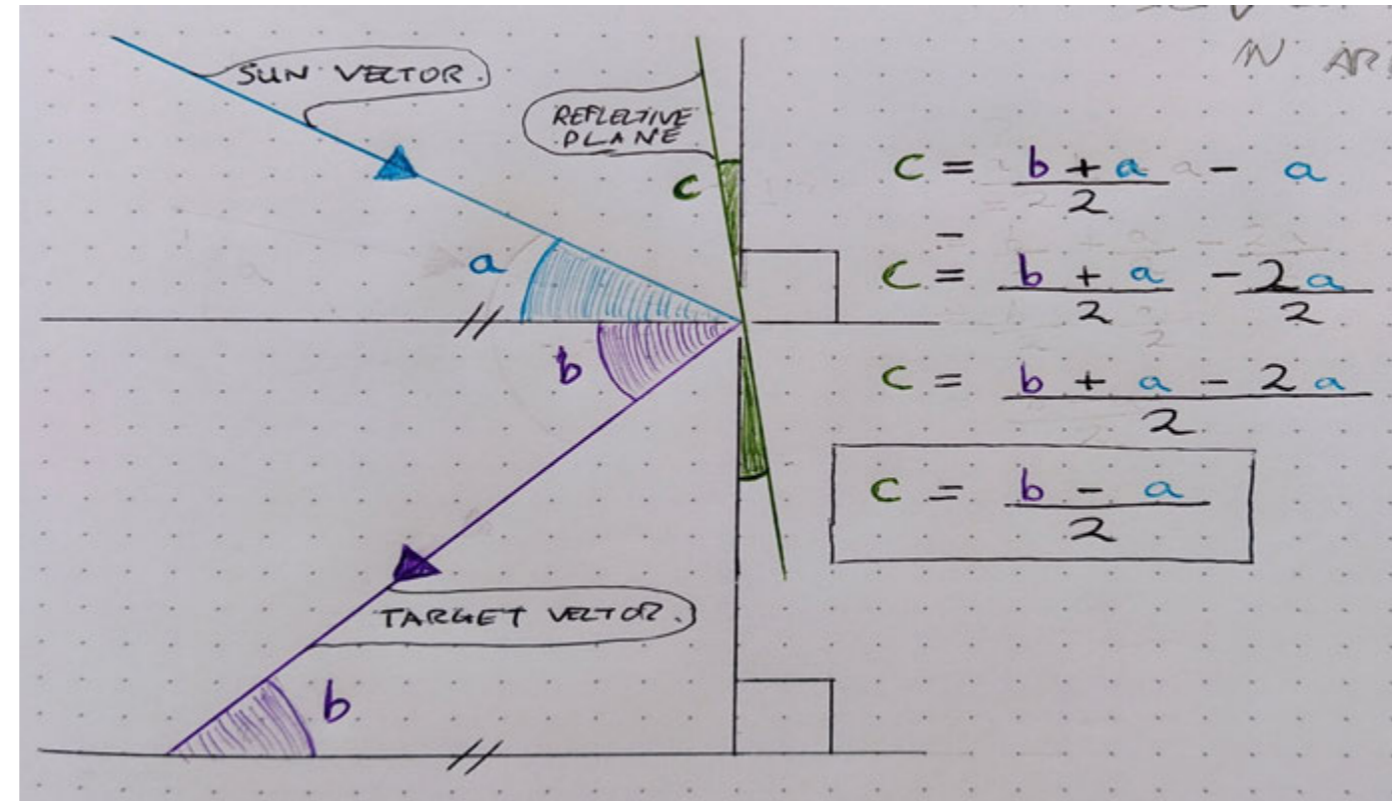 IN
SUN VECTOR.
REFLECTIVE
PLANE
c
a
b
TARGET VECTOR.
b
c = b + a / 2 - a
c = b + a / 2 - 2a / 2
c = b + a - 2a / 2
c = b - a / 2